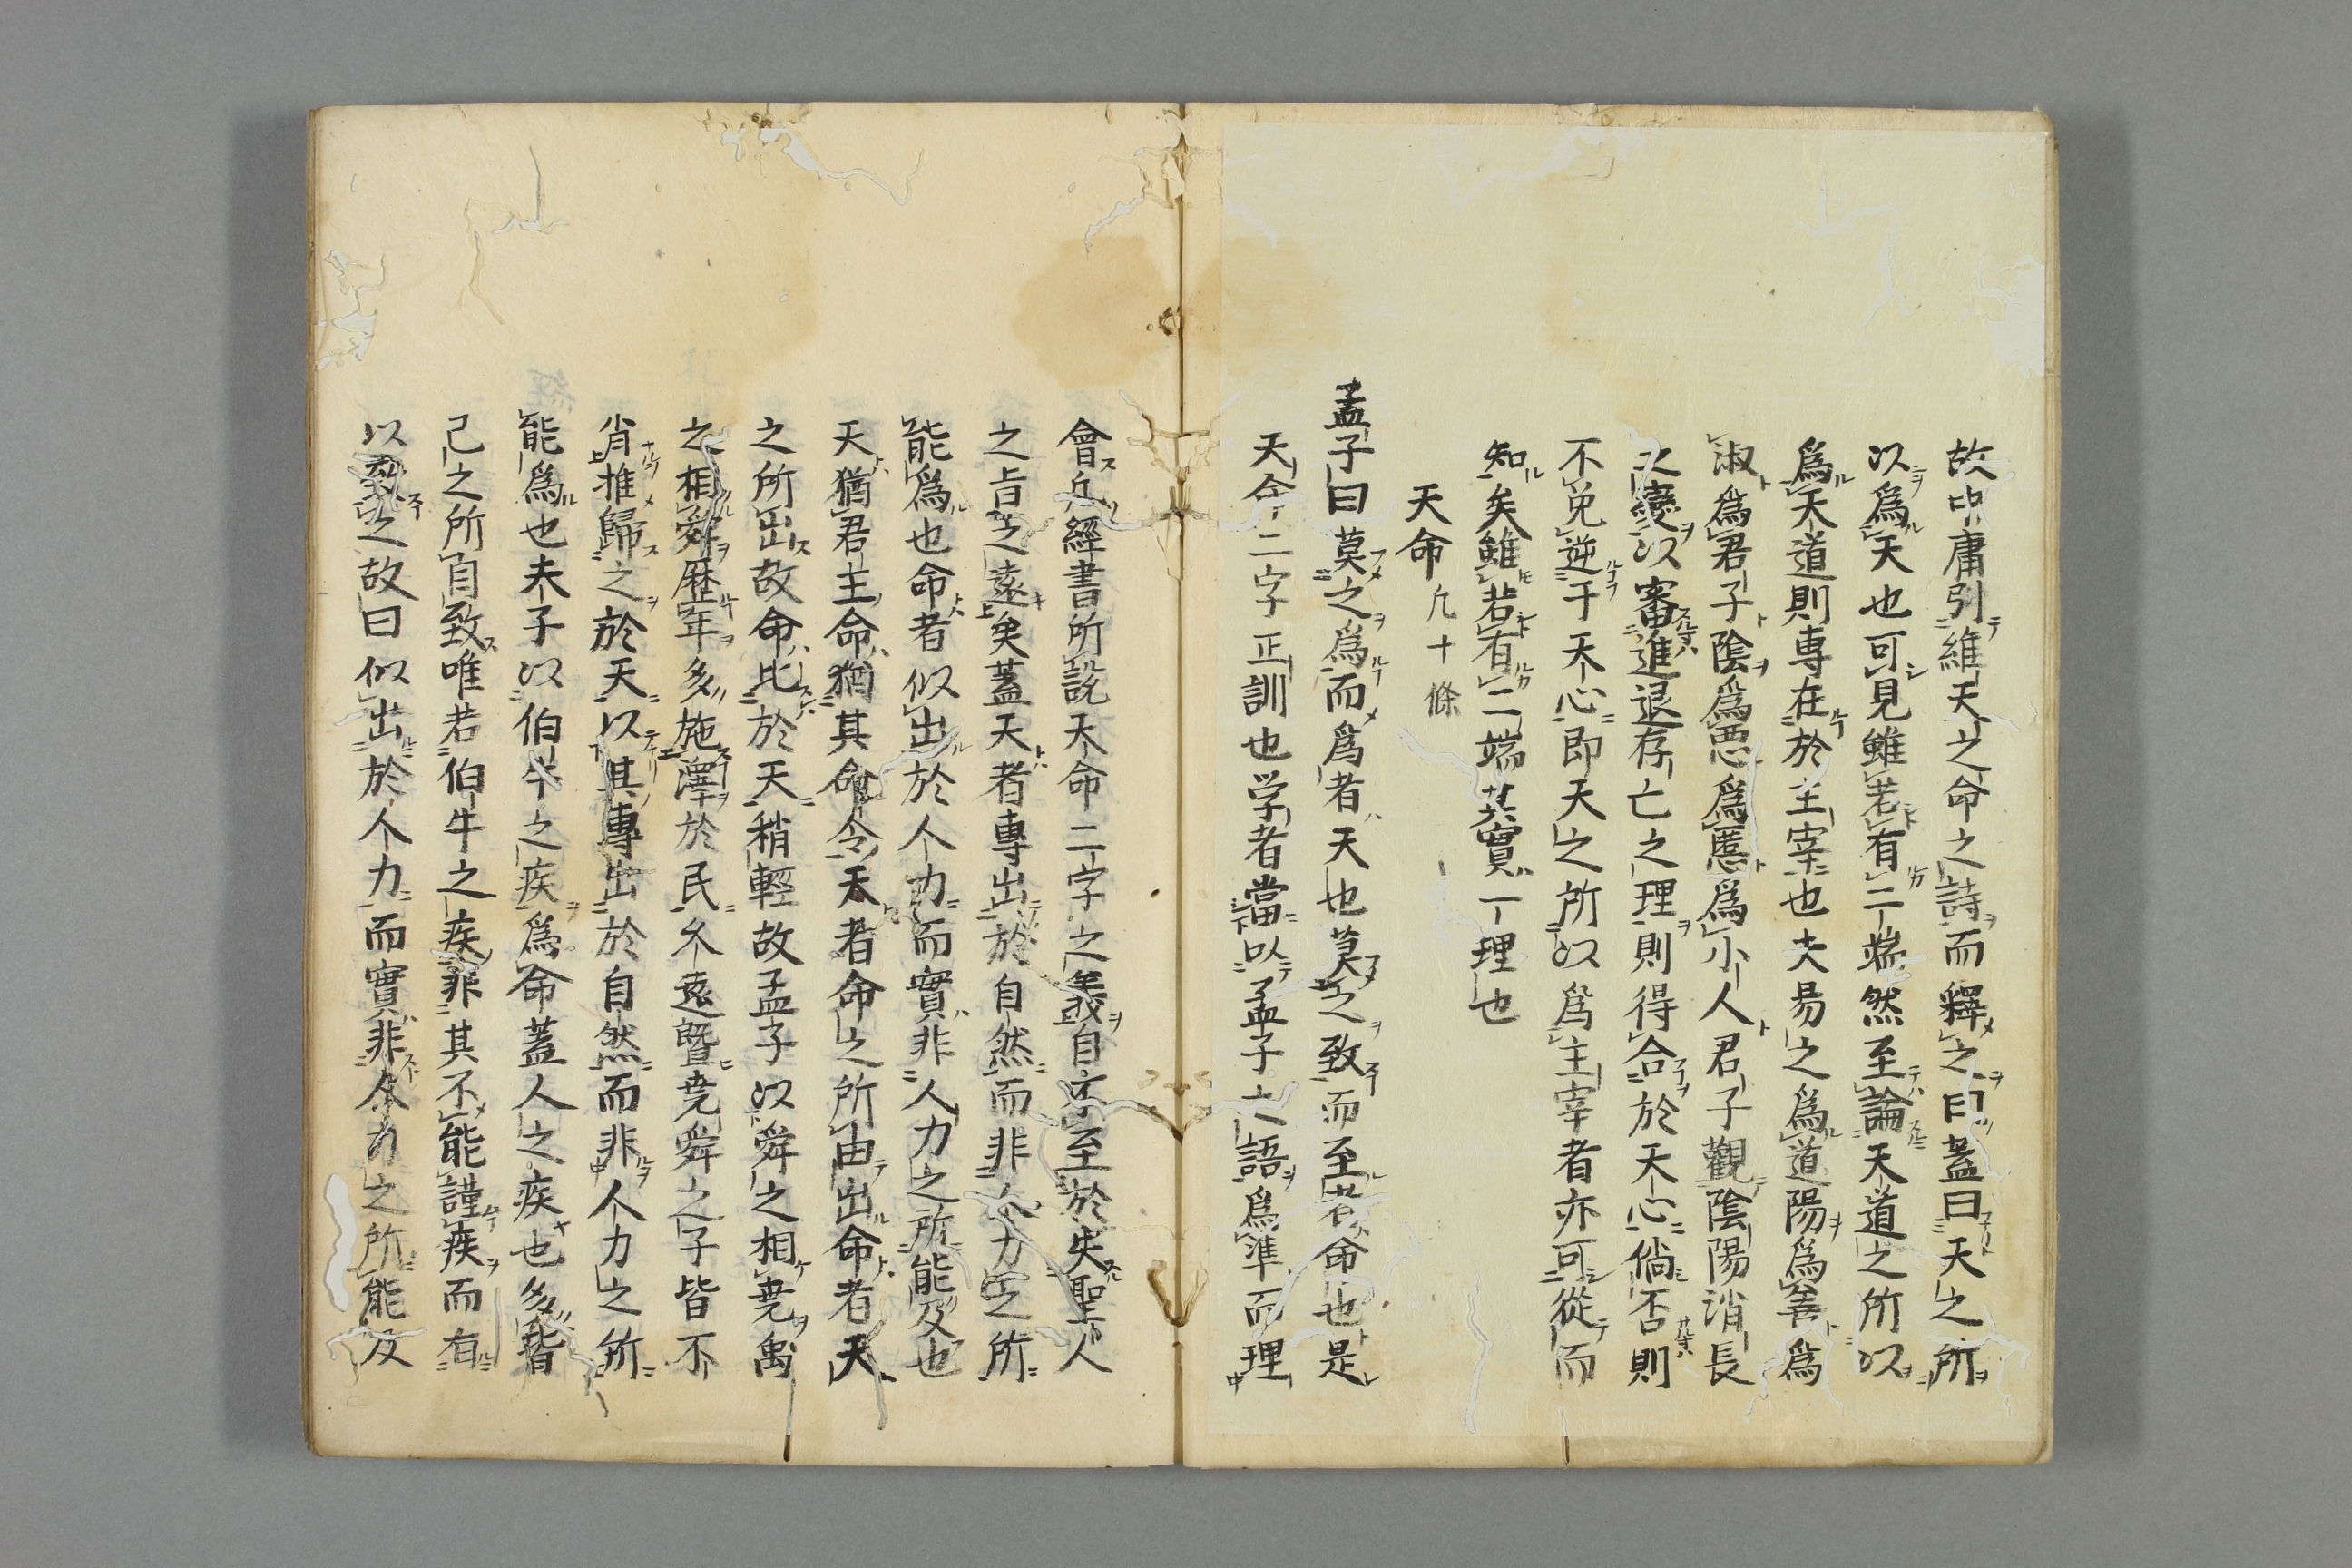 故中庸引維天之命之詩而釋之曰蓋曰天之所
以爲天也可見雖若有二端然至論天道之所以
爲天道則專在於主宰也夫易之爲道陽爲善爲
淑爲君子陰爲惡爲慝爲小人君子觀陰陽消長
之變以審進退存亡之理則得合於天心倘否則
不免逆于天心即天之所以爲主宰者亦可從而
知矣雖若有二端其實一理也
天命 凡十條
孟子曰莫之爲而爲者天也莫之致而至者命也是
天命二字正訓也学者當以孟子之語爲準而理
會凡經書所說天命二字之義自宋至於失聖人
之旨之遠矣蓋天者專出於自然而非人力之所
能爲也命者似出於人力而實非人力之所能及也
天猶君主命猶其命令天者命之所由出命者天
之所出故命比於天稍輕故孟子以舜之相堯禹
之相舜歷年多施澤於民久遠曁堯舜之子皆不
肖推歸之於天以其專出於自然而非人力之所
能爲也夫子以伯牛之疾爲命蓋人之疾也多皆
己之所自致唯若伯牛之疾非其不能謹疾而有
以致之故曰似出於人力而實非人力之所能及